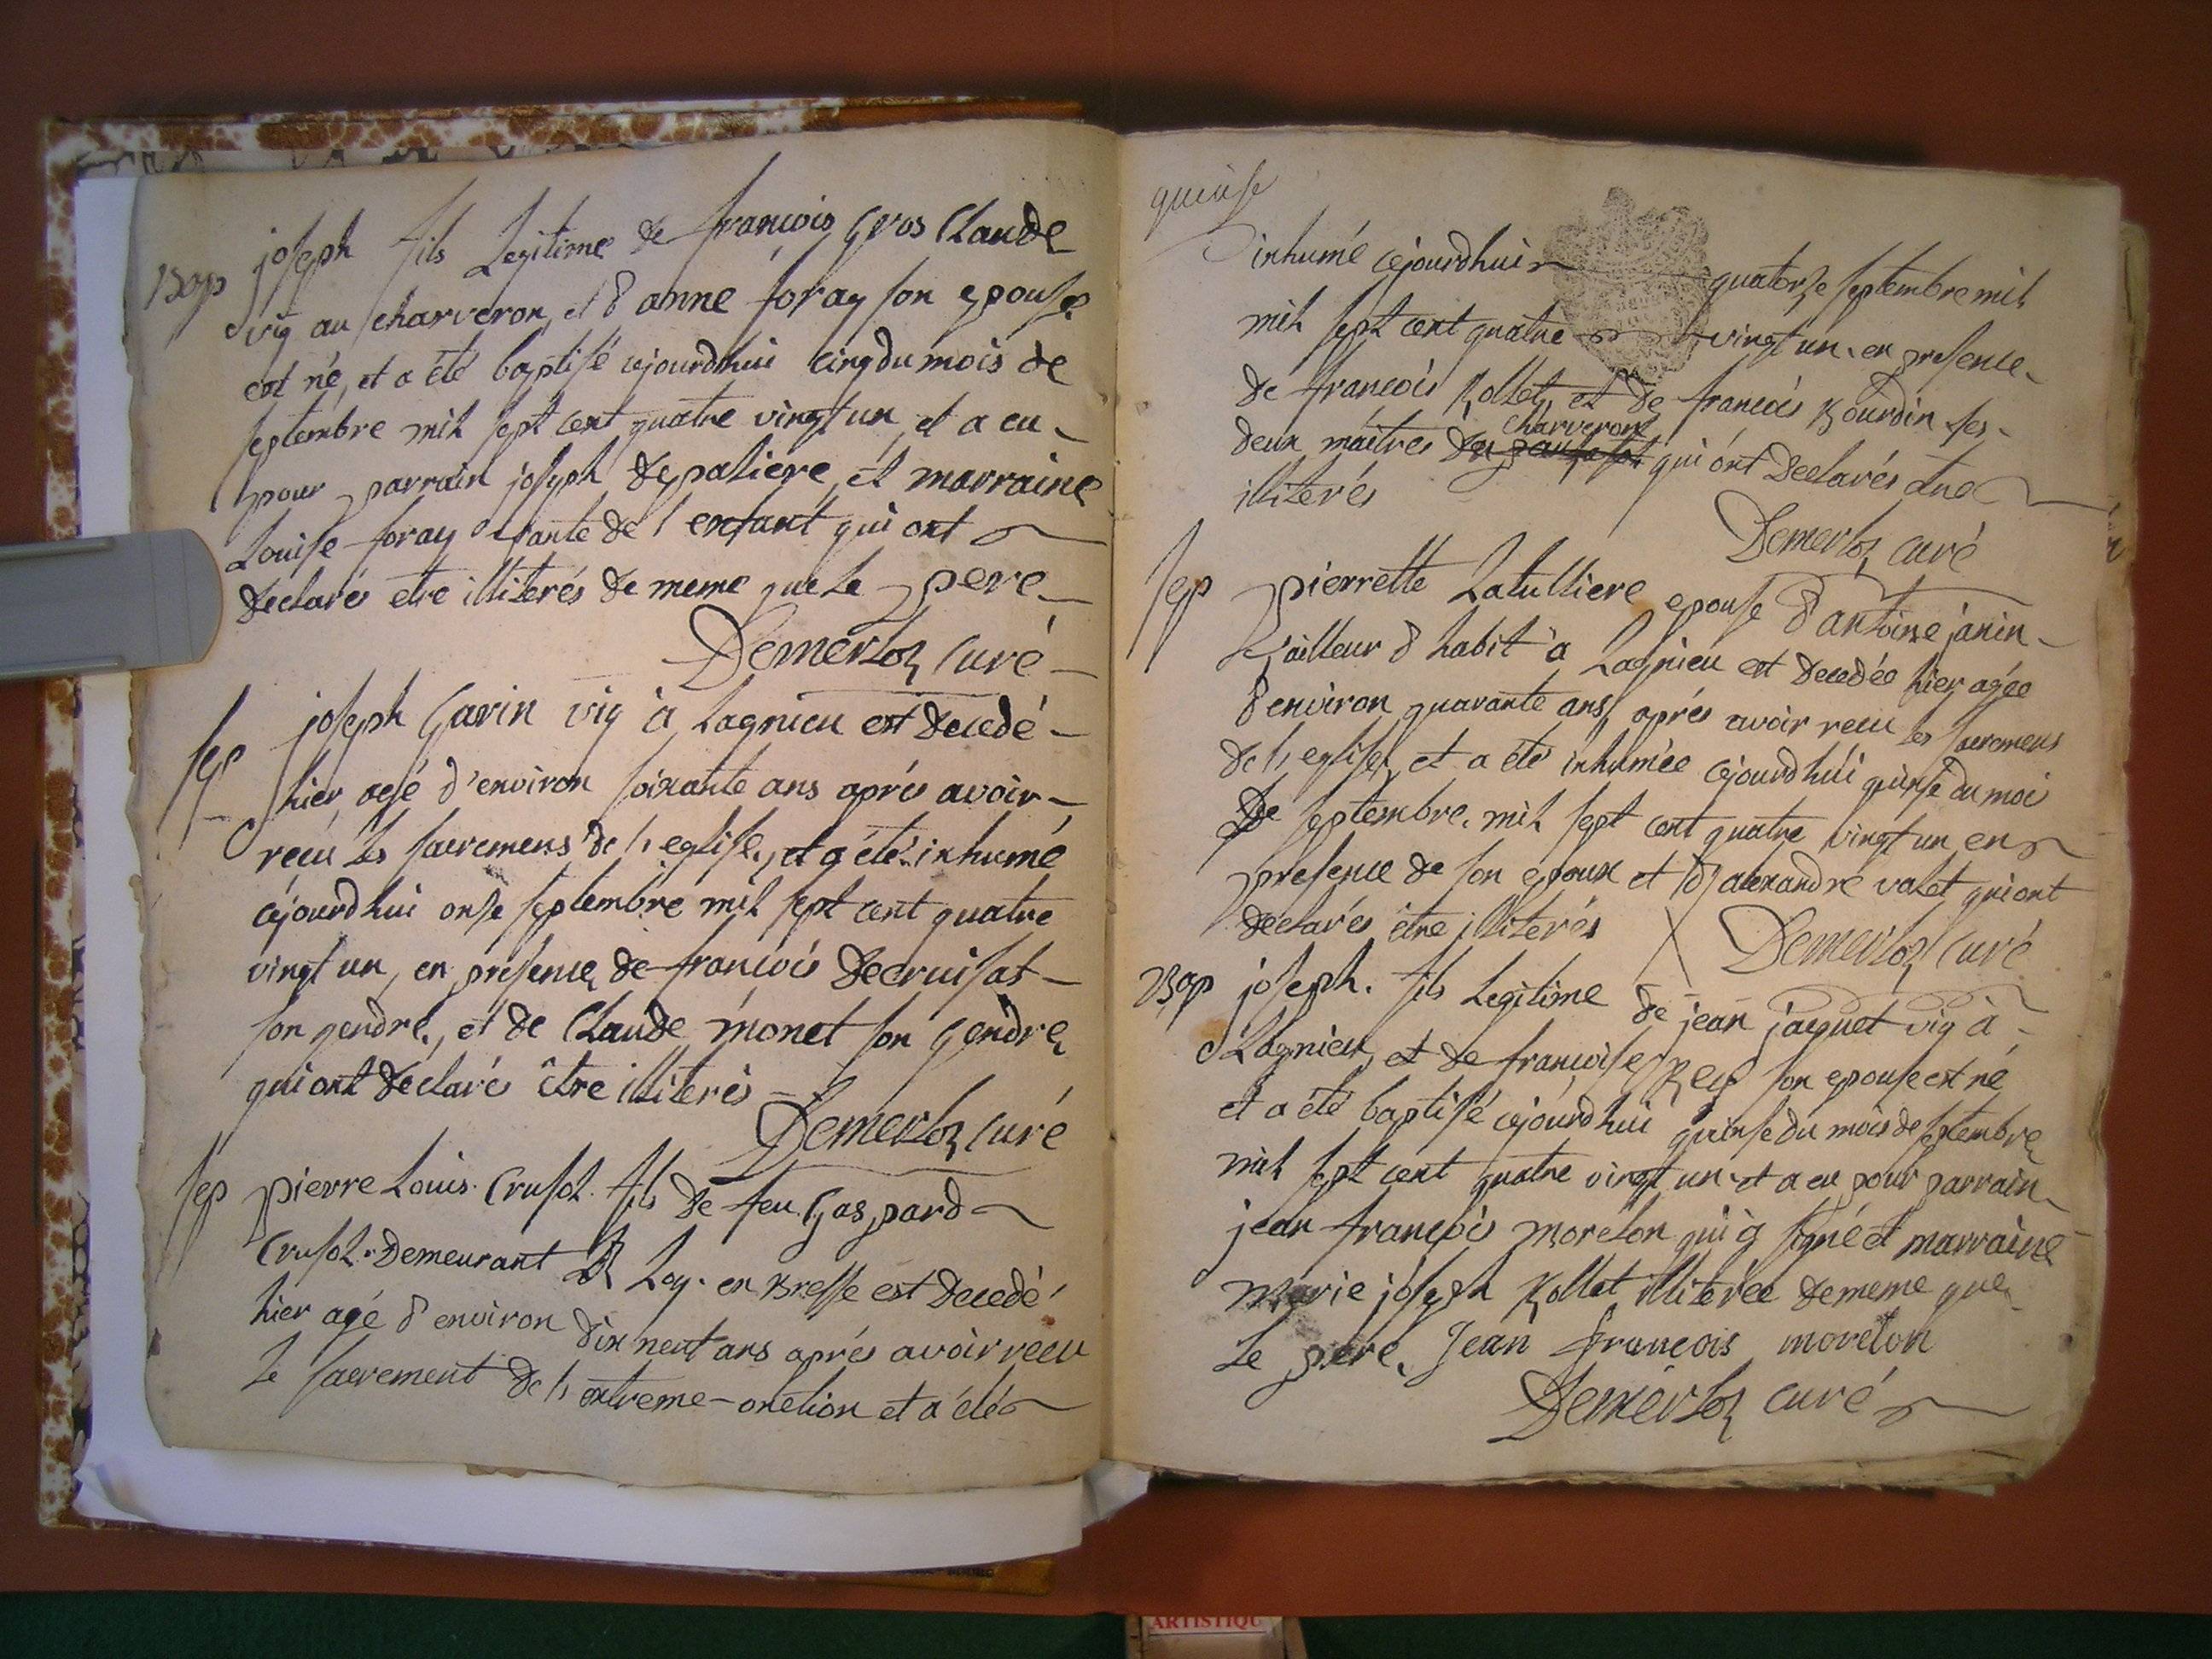 Bap joseph fils Legitime de francois Gros Claude
vig au charveron, et d'anne foray son epouse
est né, et a été baptisé cejourdhui cinq du mois de
septembre mil sept cent quatre vingt un, et a eu
pour parrain joseph depaliere, et marraine
Louise foray tante de l'enfant qui ont
declarés etre illiterés de meme que Le pere
Demerloz curé
sep joseph Garin vig à Lagnieu est decedé
hier, agé d'environ soixante ans aprés avoir
recu les sacremens de l'eglise, et a été inhumé
cejourdhui onze septembre mil sept cent quatre
vingt un, en presence de francois decruisat
son gendre, et de Claude monet son gendre
qui ont declarés être illiterés
Demerloz curé
sep pierre Louis Crusol fils de feu Gaspard
Crusol demeurant à Loy en Bresse est decedé
hier agé d'environ dix neuf ans aprés avoir recu
le sacrement de l'extreme-onction et a été
quinse
inhumé cejourdhui quatorze septembre mil
mil sept cent quatre vingt un, en presence
de francois Rollet, et de francois Bourdin ses
charveron
deux maitres qui ont declarés etre
illiterés
Demerloz curé
sep pierrette Latulliere epouse d'antoine janin
tailleur d'habit à Lagnieu est decedée hier agée
d'environ quarante ans, aprés avoir recu les sacremens
de l'eglise, et a été inhumée cejourdhui quinse du moi
de septembre mil sept cent quatre vingt un en
presence de son epoux et d'alexandre valet qui ont
declarés être illiterés Demerloz curé
Bap joseph fils Legitime de jean jaquet vig à
Lagnieu, et de francoise Rey son epouse est né
et a été baptisé cejourdhui quinse du mois de septembre
mil sept cent quatre vingt un et a eu pour parrain
jean françois morelon qui a signé et marraine
marie joseph Rollet illiterée de meme que
Le pere. Jean francois morelon
Demerloz curé
ARTISTIQU